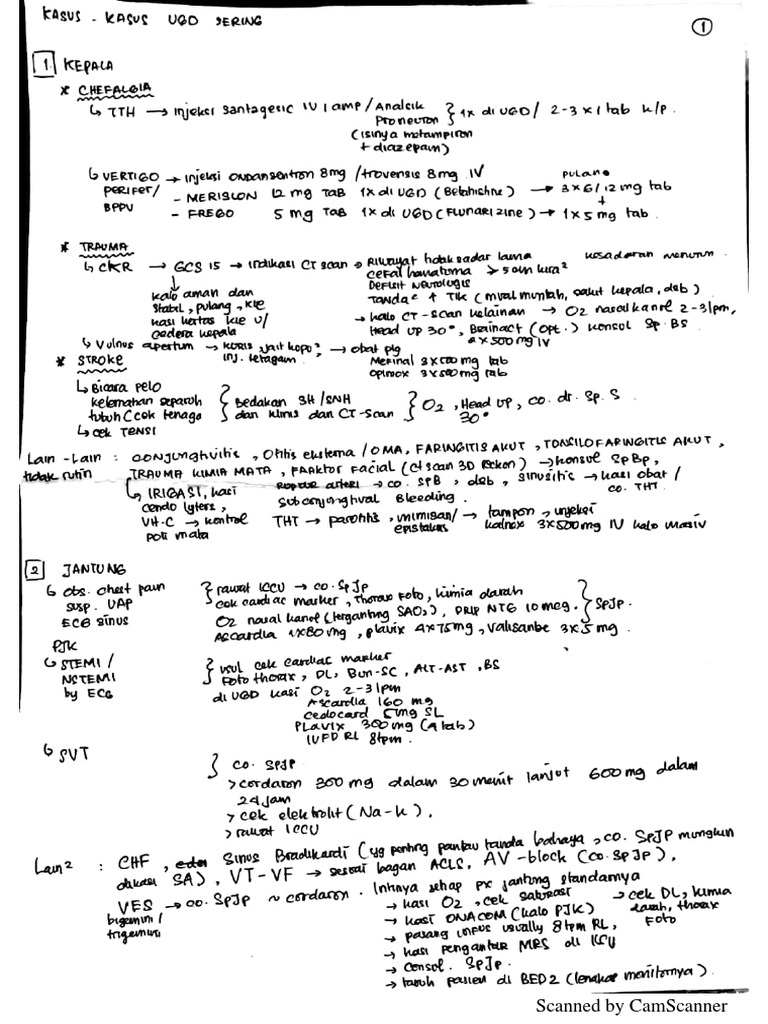 KASUS - KASUS UGD SERING
1
1 KEPALA
* CHEFALGIA
↳ TTH → injeksi Santagesic IV 1 amp / Analsik } 1x di UGD / 2-3 x 1 tab k/p.
Proneuron
(isinya metampiron
+ diazepam)
↳ VERTIGO → injeksi ONDANSENTRON 8mg / trovensis 8mg IV
PERIFER/
BPPV
pulang
- MERISLON 12 mg TAB 1x di UGD (Betahishne) → 3x6/12 mg tab
+
- FREGO 5 mg TAB 1x di UGD (FLUNARIZINE) → 1x5 mg tab.
* TRAUMA
↳ CKR → GCS 15 → indikasi CT scan → Riwayat tidak sadar lama kesadaran menurun
cefal hematoma > 5cm kira²
Defisit Neurologis
Tanda² ↑ TIK (mual muntah, sakit kepala, dsb)
kalo aman dan
stabil, pulang, kie
kasi kertas kie u/
cedera kepala
→ kalo CT-scan kelainan → O2 nasal kanol 2-3 lpm,
Head up 30°, Brainact (opt.) konsul Sp.BS
2x500mg IV
↳ Vulnus apertum → krosis, jait kopo², → obat plg
inj. tetagam
Mefinal 3x500 mg tab
Opimox 3x500 mg tab
* STROKE
↳ Bicara pelo
kelemahan separuh
tubuh (cek tenaga
↳ cek TENSI
{ Bedakan SH/SNH
dan klinis dan CT-Scan
} O2, Head UP, co. dr. Sp. S
30°
Lain - Lain : CONJUNGTIVITIS, Otitis eksterna / OMA, FARINGITIS AKUT, TONSILOFARINGITIS AKUT,
tidak rutin TRAUMA KIMIA MATA, FRAKTOR FACIAL (ct scan 3D Rekon) → konsul SpBp,
Ruptur arteri → co. SPB, dsb, sinusitis → kasi obat /
co. THT.
↳ IRIGASI, kasi
cendo lyters,
VH-C → kontrol
poli mata
Subconjunghval Bleeding.
THT → parotitis, mimisan/ → tampon, injeksi
epistaksis
kalnex 3x500mg IV kalo masiv
2 JANTUNG
↳ Obs. chest pain
susp. UAP
ECG sinus
} rawat ICCU → co. SpJp
cek cardiac marker, thorax foto, kimia darah
O2 nasal kanol (tergantung SAO2), DRIP NTG 10 mcg.
Ascardia 1x80 mg, plavix 4x75mg, valisanbe 3x5 mg.
} SpJP.
PJK
↳ STEMI /
NSTEMI
by ECG
{ usul cek cardiac marker
Foto thorax, DL, Bun-SC, ALT-AST, BS
di UGD kasi O2 2-3 lpm
Ascardia 160 mg
Cedocard 5mg SL
PLavix 300 mg (4 tab)
IVFD RL 8tpm.
↳ SVT
} co. SpJP
> cordaron 300 mg dalam 30 menit lanjut 600 mg dalam
24 jam
> cek elektrolit (Na-K),
> rawat ICCU
Lain2 : CHF, Sinus Bradikardi (yg penting pantau tanda bahaya, co. SPJP mungkin
dikasi SA), VT-VF → sesuai bagan ACLS, AV-block (co. SpJP),
VES → co. SpJP ~ cordaron. Intinya setiap px jantung standarnya
bigemini/
trigemini
→ kasi O2, cek saturasi
→ kasi ONACOM (kalo PJK)
→ pasang infus usually 8tpm RL,
→ kasi pengantar MRS di ICU
→ Consul. SpJp.
→ taruh pasien di BED2 (lengkap monitornya).
→ cek DL, kimia
darah, thorax
Foto
Scanned by CamScanner